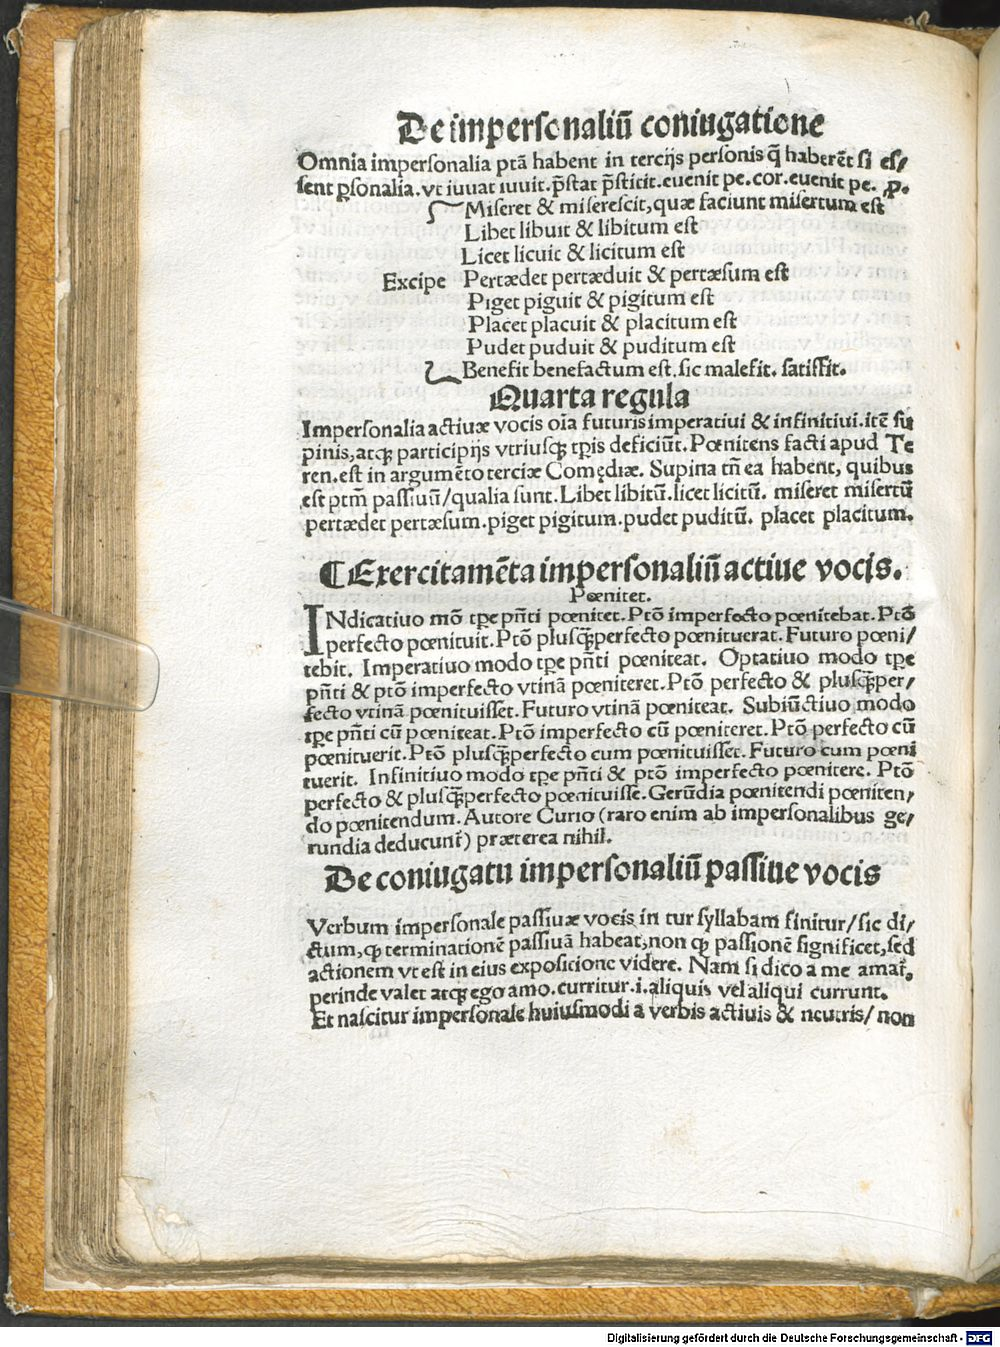 De impersonaliū coniugatione
Omnia impersonalia ptā habent in tercijs personis q̄ haberēt si es/
sent ꝑsonalia. vt iuuat iuuit. p̄stat p̄stitit. euenit pe. cor. euenit pe. ꝓ.
Miseret & miserescit, quæ faciunt misertum est
Libet libuit & libitum est
Licet licuit & licitum est
Excipe Pertædet pertæduit & pertæsum est
Piget piguit & pigitum est
Placet placuit & placitum est
Pudet puduit & puditum est
Benefit benefactum est. sic malefit. satisfit.
Quarta regula
Impersonalia actiuæ vocis oīa futuris imperatiui & infinitiui. itē su
pinis, atqꝫ participijs vtriusqꝫ tp̄is deficiūt. Pœnitens facti apud Te
ren. est in argumēto terciæ Comędiæ. Supina tn̄ ea habent, quibus
est ptm̄ passiuū/ qualia sunt. Libet libitū. licet licitū. miseret misertū
pertædet pertæsum. piget pigitum. pudet puditū. placet placitum.
¶ Exercitamēta impersonaliū actiue vocis.
Pœnitet.
INdicatiuo mō tꝑe pn̄ti pœnitet. Ptō imperfecto pœnitebat. Ptō
perfecto pœnituit. Ptō plusq̄perfecto pœnituerat. Futuro pœni/
tebit. Imperatiuo modo tꝑe pn̄ti pœniteat. Optatiuo modo tꝑe
pn̄ti & ptō imperfecto vtinā pœniteret. Ptō perfecto & plusq̄per/
fecto vtinā pœnituisset. Futuro vtinā pœniteat. Subiūctiuo modo
tꝑe pn̄ti cū pœniteat. Ptō imperfecto cū pœniteret. Ptō perfecto cū
pœnituerit. Ptō plusq̄perfecto cum pœnituisset. Futuro cum pœni
tuerit. Infinitiuo modo tꝑe pn̄ti & ptō imperfecto pœnitere. Ptō
perfecto & plusq̄perfecto pœnituisse. Gerūdia pœnitendi pœniten/
do pœnitendum. Autore Curio (raro enim ab impersonalibus ge/
rundia deducunt᷑) præterea nihil.
De coniugatu impersonaliū passiue vocis
Verbum impersonale passiuæ vocis in tur syllabam finitur/ sic di/
ctum, qꝫ terminationē passiuā habeat, non qꝫ passionē significet, sed
actionem vt est in eius expositione videre. Nam si dico a me amat᷑.
perinde valet atqꝫ ego amo. curritur .i. aliquis vel aliqui currunt.
Et nascitur impersonale huiusmodi a verbis actiuis & neutris/ non
Digitalisierung gefördert durch die Deutsche Forschungsgemeinschaft - DFG